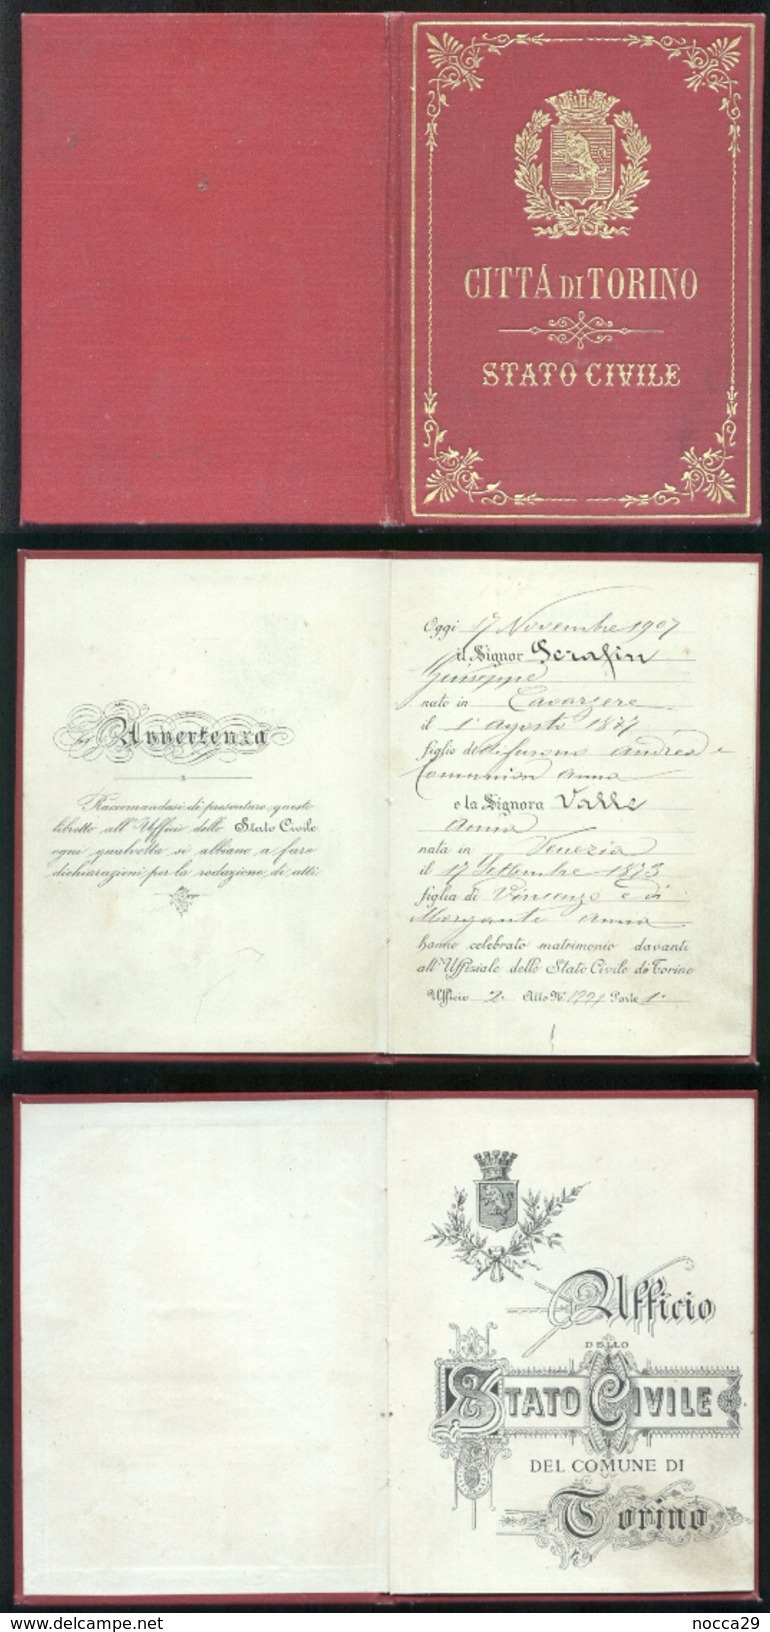 CITTÁ DI TORINO
STATO CIVILE
Avvertenza
Raccomandasi di presentare questo
libretto all'Ufficio dello Stato Civile
ogni qualvolta si abbiano a fare
dichiarazioni per la redazione di atti.
Oggi 17 Novembre 1907
il Signor Serafin
Giuseppe
nato in Cavarzere
il 1° Agosto 1877
figlio di Andrea e
Anna
e la Signora Valle
Anna
nata in Venezia
il 17 Settembre 1873
figlia di Vincenzo e di
Morgante Anna
hanno celebrato matrimonio davanti
all'Uffiziale dello Stato Civile di Torino
Ufficio 2° Atto N° Parte 1ª
Ufficio
DELLO
STATO CIVILE
DEL COMUNE DI
Torino
delcampe.net
nocca29